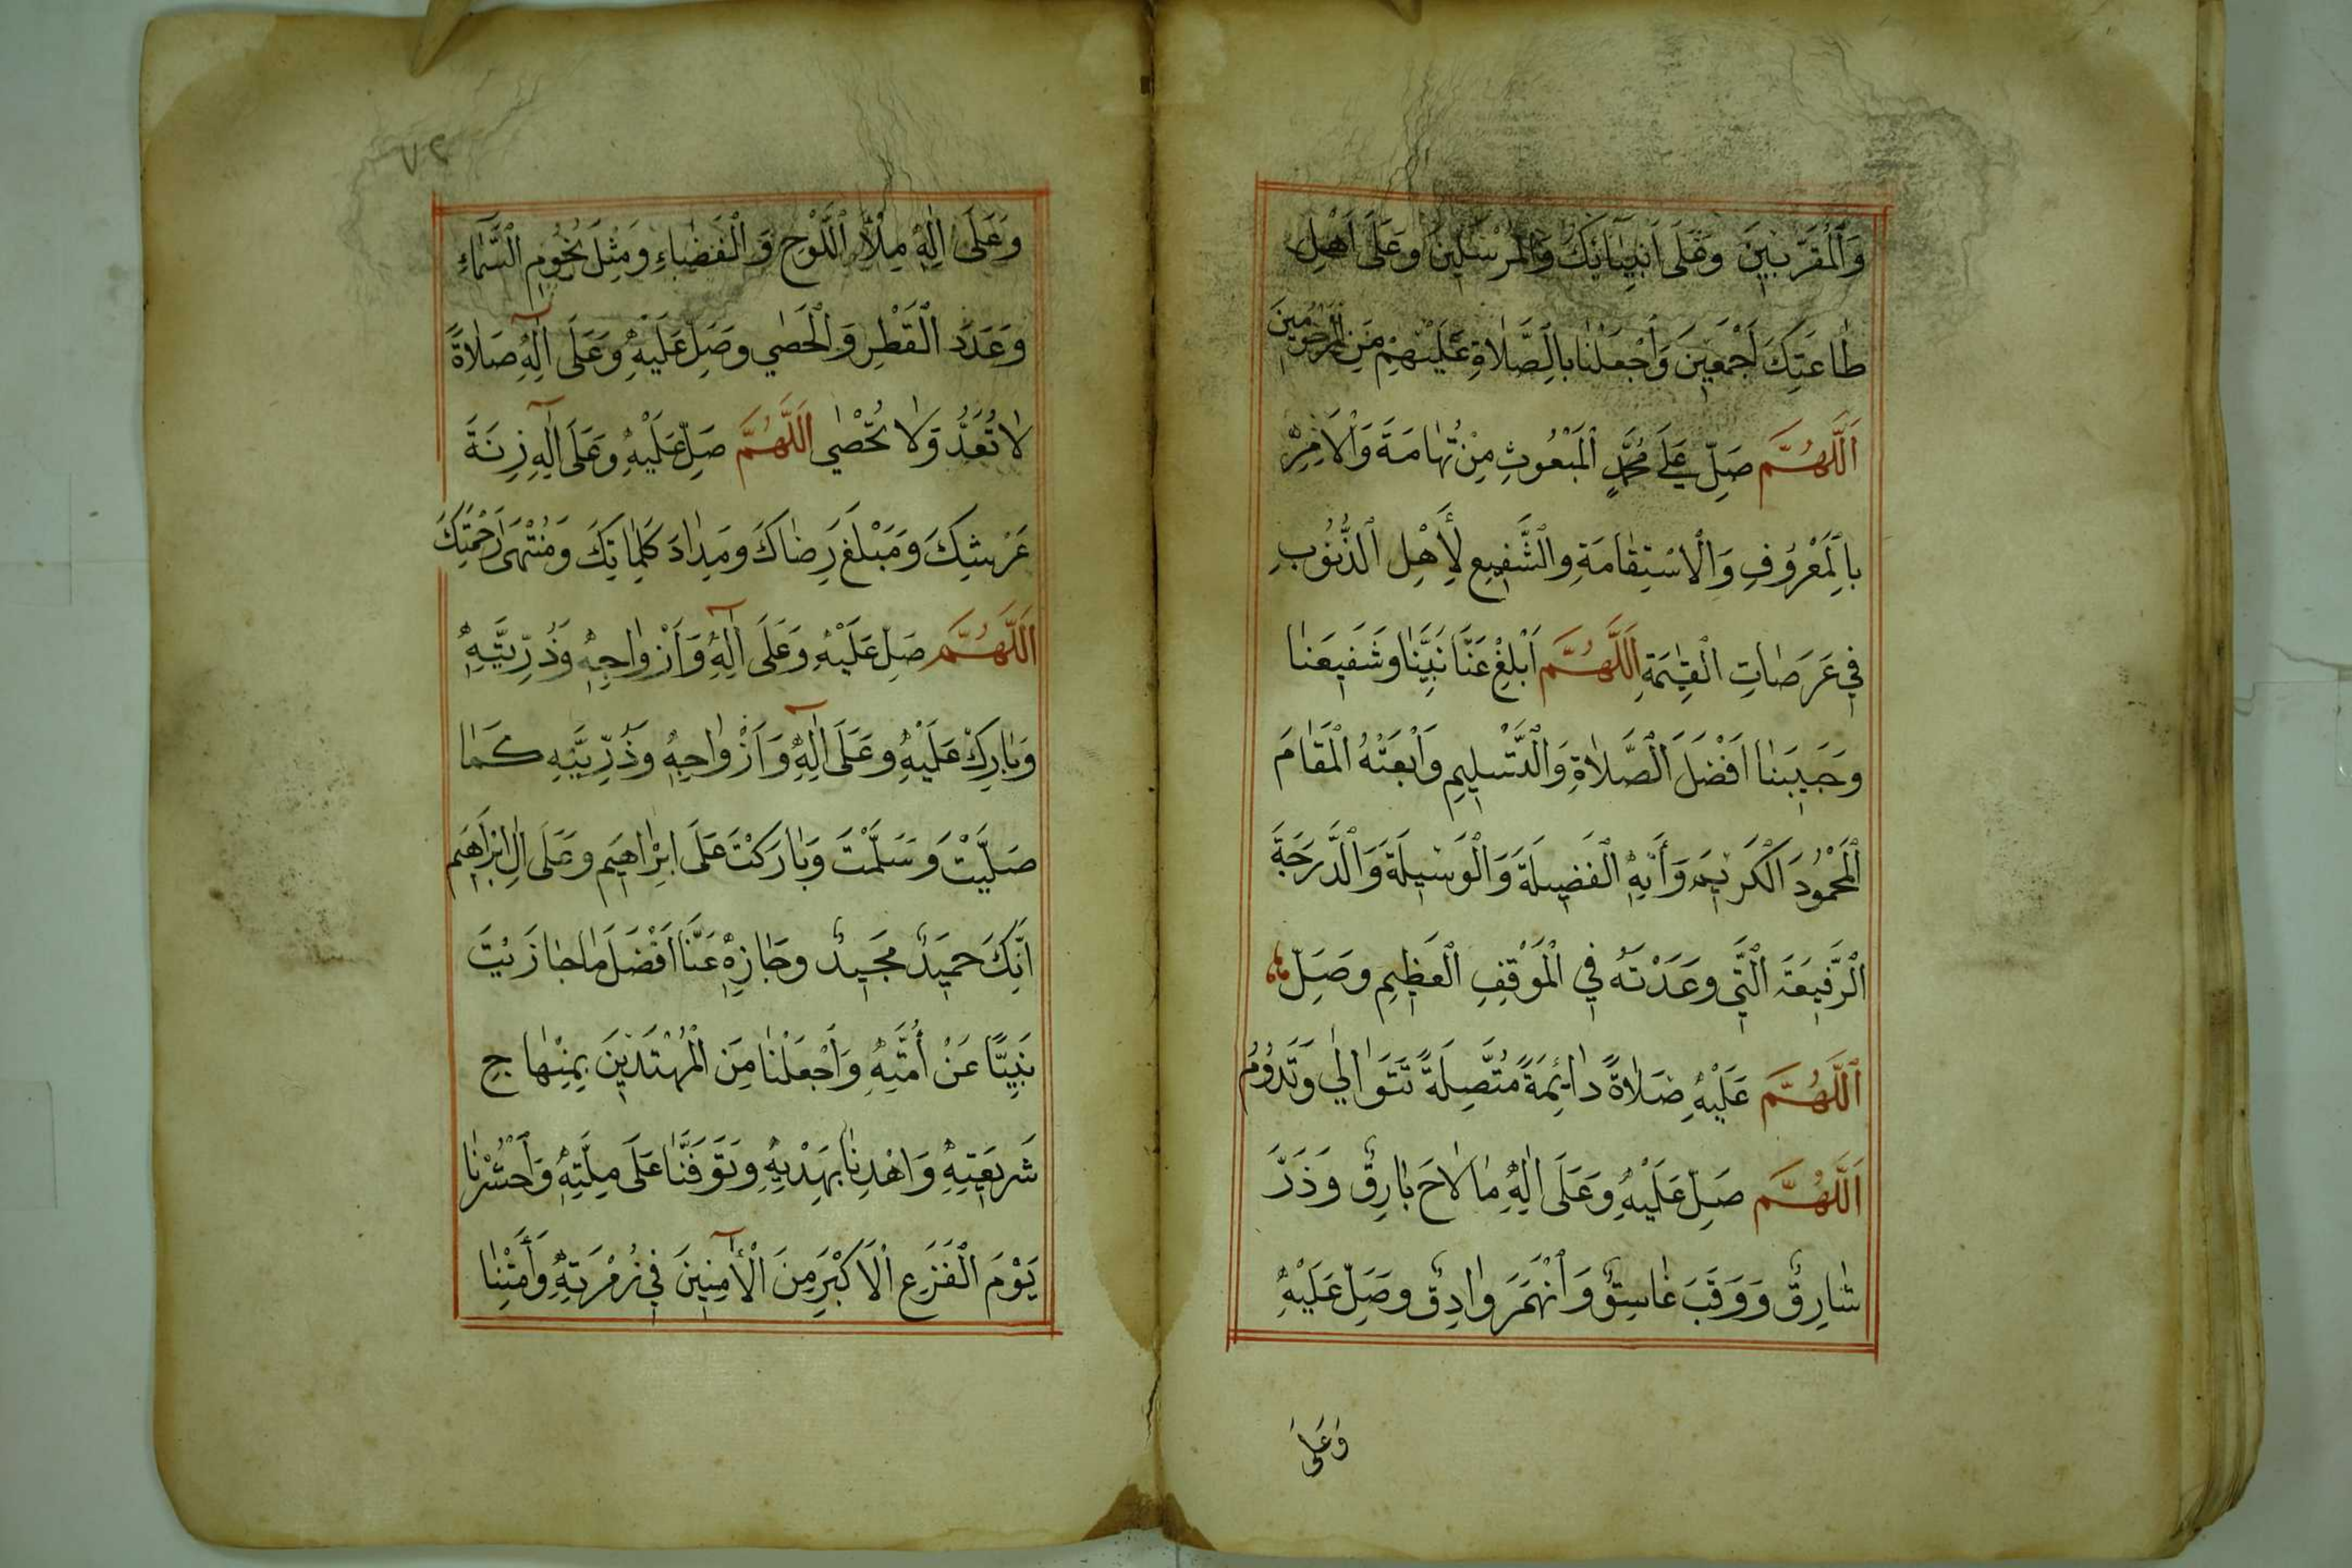 وَالْمُقَرَّبِينَ وَعَلَى أَنْبِيَائِكَ وَالْمُرْسَلِينَ وَعَلَى أَهْلِ
طَاعَتِكَ أَجْمَعِينَ وَاجْعَلْنَا بِالصَّلَاةِ عَلَيْهِمْ مِنَ الْمَرْحُومِينَ
اَللَّهُمَّ صَلِّ عَلَى مُحَمَّدٍ الْمَبْعُوثِ مِنْ تِهَامَةَ وَالْآمِرِ
بِالْمَعْرُوفِ وَالْاسْتِقَامَةِ وَالشَّفِيعِ لِأَهْلِ الذُّنُوبِ
فِي عَرَصَاتِ الْقِيٰمَةِ اَللَّهُمَّ أَبْلِغْ عَنَّا نَبِيَّنَا وَشَفِيعَنَا
وَحَبِيبَنَا أَفْضَلَ الصَّلَاةِ وَالتَّسْلِيمِ وَابْعَثْهُ الْمَقَامَ
الْمَحْمُودَ الْكَرِيمَ وَآتِهِ الْفَضِيلَةَ وَالْوَسِيلَةَ وَالدَّرَجَةَ
الرَّفِيعَةَ الَّتِي وَعَدْتَهُ فِي الْمَوْقِفِ الْعَظِيمِ وَصَلِّ
اَللَّهُمَّ عَلَيْهِ صَلَاةً دَائِمَةً مُتَّصِلَةً تَتَوَالَى وَتَدُومُ
اَللَّهُمَّ صَلِّ عَلَيْهِ وَعَلَى آلِهِ مَا لَاحَ بَارِقٌ وَذَرَّ
شَارِقٌ وَوَقَبَ غَاسِقٌ وَانْهَمَرَ وَادِقٌ وَصَلِّ عَلَيْهِ
وَعَلَى
٢٧
وَعَلَى آلِهِ مِلْأَ اللَّوْحِ وَالْفَضَاءِ وَمِثْلَ نُجُومِ السَّمَاءِ
وَعَدَدَ الْقَطْرِ وَالْحَصَى وَصَلِّ عَلَيْهِ وَعَلَى آلِهِ صَلَاةً
لَا تُعَدُّ وَلَا تُحْصَى اَللَّهُمَّ صَلِّ عَلَيْهِ وَعَلَى آلِهِ زِنَةَ
عَرْشِكَ وَمَبْلَغَ رِضَاكَ وَمِدَادَ كَلِمَاتِكَ وَمُنْتَهَى رَحْمَتِكَ
اَللَّهُمَّ صَلِّ عَلَيْهِ وَعَلَى آلِهِ وَأَزْوَاجِهِ وَذُرِّيَّتِهِ
وَبَارِكْ عَلَيْهِ وَعَلَى آلِهِ وَأَزْوَاجِهِ وَذُرِّيَّتِهِ كَمَا
صَلَّيْتَ وَسَلَّمْتَ وَبَارَكْتَ عَلَى إِبْرَاهِيمَ وَعَلَى آلِ إِبْرَاهِيمَ
إِنَّكَ حَمِيدٌ مَجِيدٌ وَجَازِهِ عَنَّا أَفْضَلَ مَا جَازَيْتَ
نَبِيًّا عَنْ أُمَّتِهِ وَاجْعَلْنَا مِنَ الْمُهْتَدِينَ بِمِنْهَاجِ
شَرِيعَتِهِ وَاهْدِنَا بِهَدْيِهِ وَتَوَفَّنَا عَلَى مِلَّتِهِ وَاحْشُرْنَا
يَوْمَ الْفَزَعِ الْأَكْبَرِ مِنَ الْآمِنِينَ فِي زُمْرَتِهِ وَأَمِتْنَا